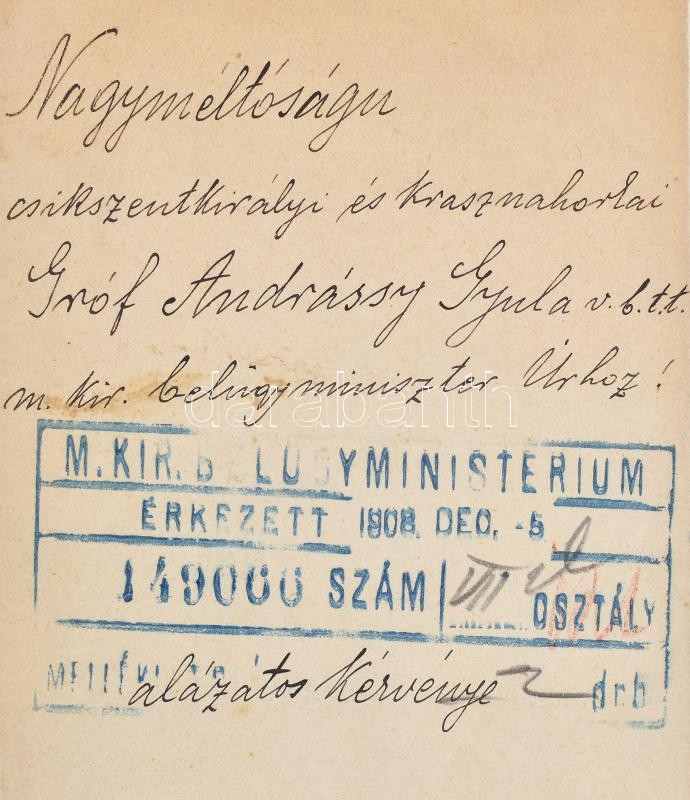 Nagyméltóságu
csikszentkirályi és krasznahorkai
Gróf Andrássy Gyula v. b. t. t.
m. kir. belügyminiszter Úrhoz!
darabanth
M. KIR. BELÜGYMINISTERIUM
ÉRKEZETT 1908. DEC. -5
149066 SZÁM VIII OSZTÁLY
alázatos kérvénye
drb